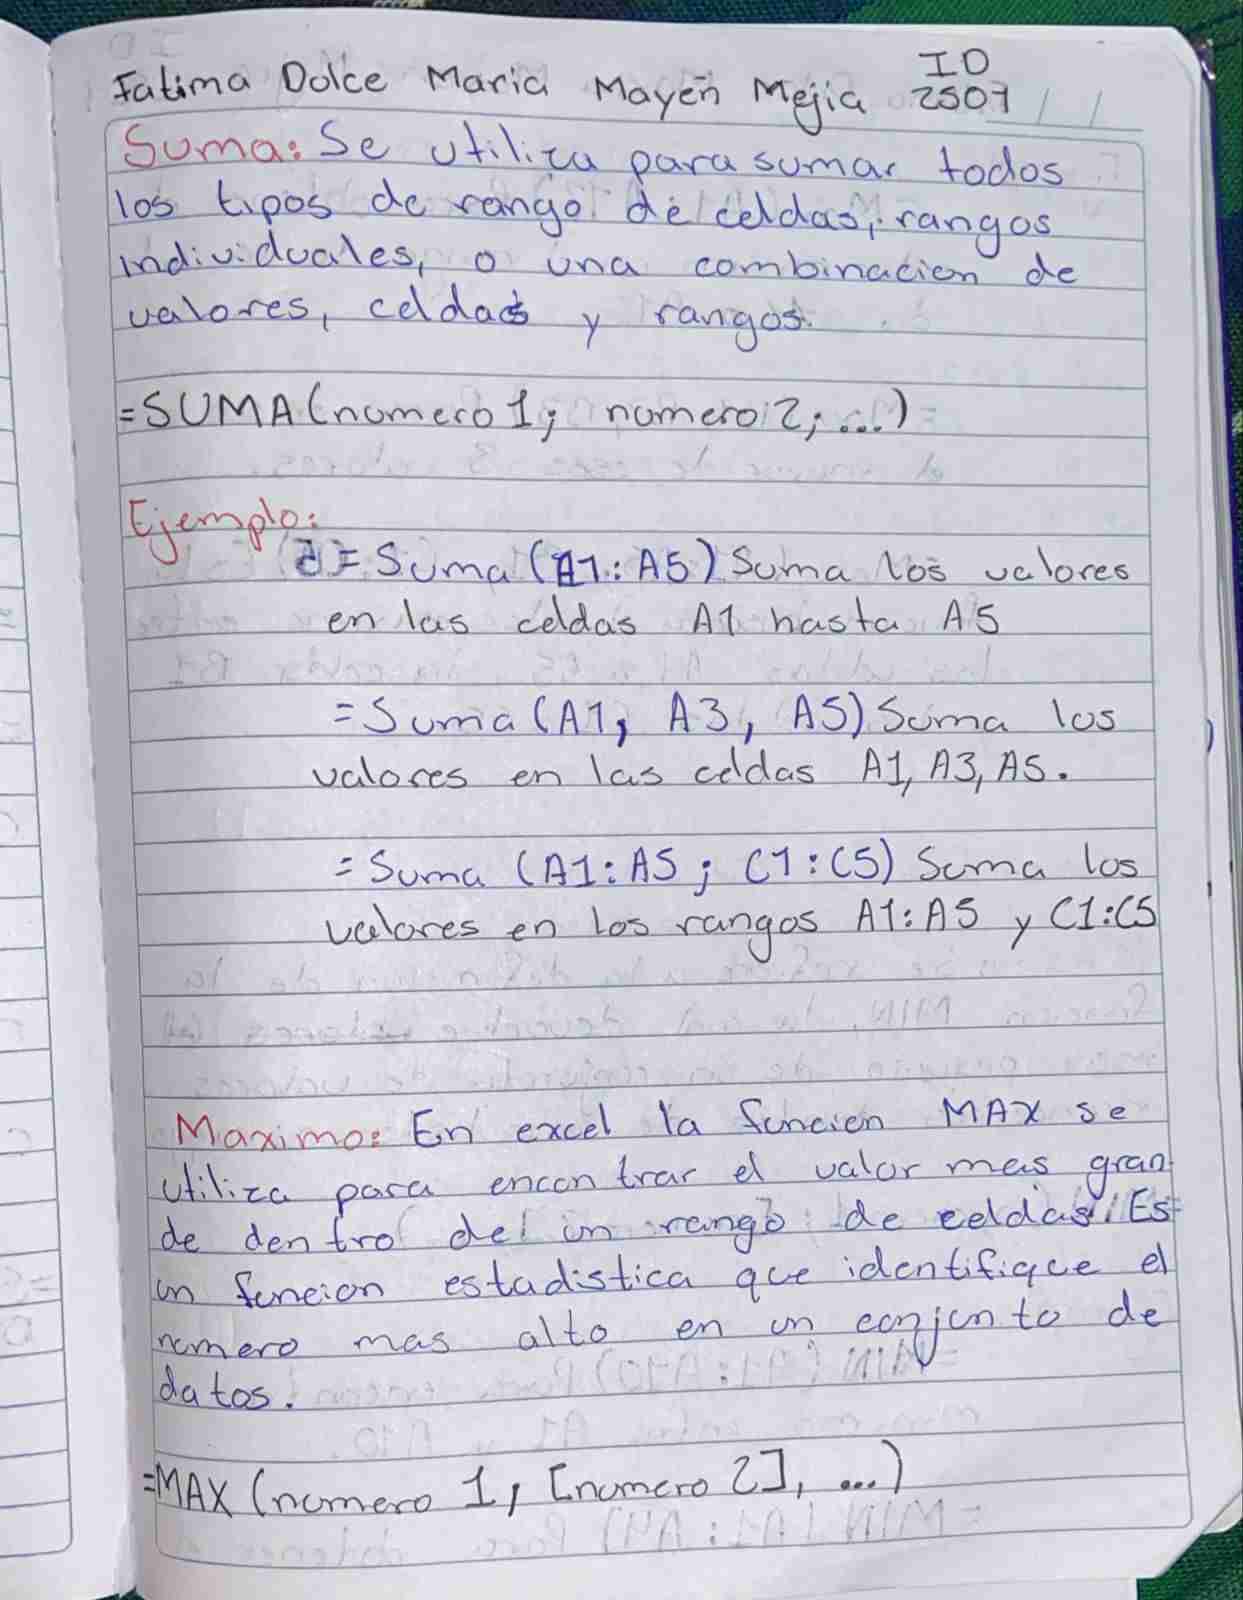 Fatima Dolce Maria Mayen Mejia ID 2507
Suma: Se utiliza para sumar todos
los tipos de rango de celdas, rangos
individuales, o una combinacion de
valores, celdas y rangos.
=SUMA(numero 1; numero 2; ...)
Ejemplo:
= Suma (A1:A5) Suma los valores
en las celdas A1 hasta A5
= Suma (A1, A3, A5) Suma los
valores en las celdas A1, A3, A5.
= Suma (A1:A5 ; C1:C5) Suma los
valores en los rangos A1:A5 y C1:C5
Maximo: En excel la funcion MAX se
utiliza para encontrar el valor mas gran
de dentro de un rango de celdas. Es
un funcion estadistica que identifique el
numero mas alto en un conjunto de
datos.
=MAX (numero 1, [numero 2], ...)